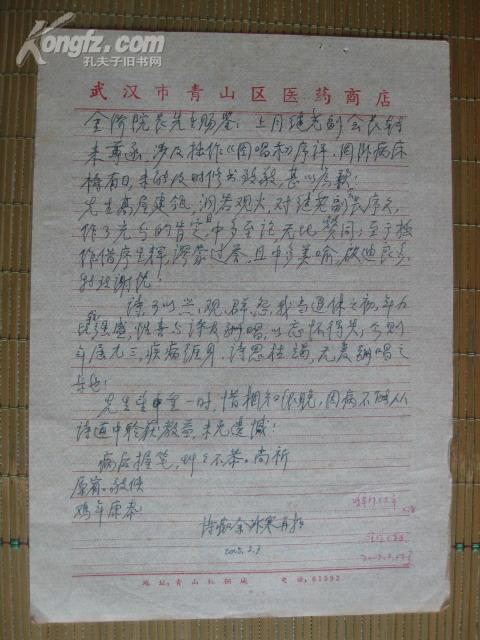 Kongfz.com
孔夫子旧书网
武汉市青山区医药商店
院长先生赐鉴：上月继光副会长转
来尊函，涉及拙作《唱和》序评，因卧病床
有日，未能及时修书致敬，甚以为歉！
先生高屋建瓴，洞若观火，对继光副会长序文，
作了充分的肯定，赞同；至于拙
作借序生辉，谬蒙过奖，且中多美喻，启迪良多，
特致谢忱！
诗可以兴、观、群、怨，我当退休之初，年力
强盛，性喜与诗友酬唱，以忘怀得失，今则
年届九三，疾病缠身，诗思枯竭，无复酬唱之
乐也！
先生望重一时，惜相知恨晚，因病不能从
诗道中聆获教益，未免遗憾！
病后握笔，草草不恭。尚祈
原宥。敬候
鸡年康泰！
余冰寒再拜
2005.2.3
地址：青山红钢城 电话：61392